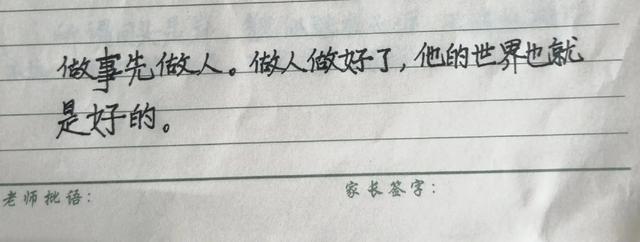 做事先做人。做人做好了，他的世界也就
是好的。
老师批语：
家长签字：